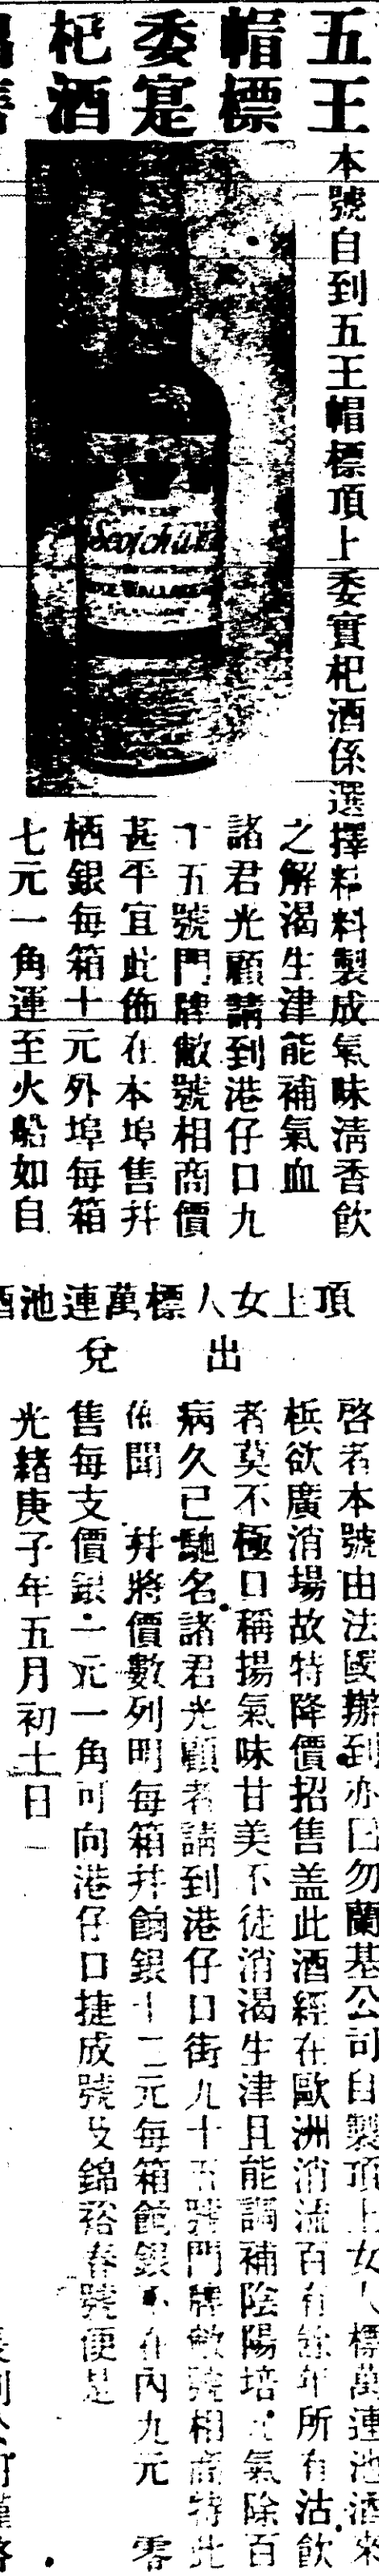 五王
帽標
委寔
杞酒
本號自到五王帽標頂上委實杞酒係選擇料製成氣味清香飲
之解渴生津能補氣血
諸君光顧請到港仔口九
十五號門牌敝號相商價
甚平宜此佈在本埠售幷
栖銀每箱十元外埠每箱
七元一角運至火船如自
Scotch
WALLACE
頂上女人標萬連池酒
出兌
啓者本號由法國辦到亦囗勿蘭基公司自製頂上女人標萬連池酒來
梹欲廣消塲故特降價招售盖此酒經在歐洲消流百有餘年所有沽飲
者莫不極口稱揚氣味甘美不徒消渴生津且能調補陰陽培元氣除百
病久已馳名諸君光顧者請到港仔口街九十五號門牌敝號相商特此
佈聞 幷將價數列明每箱幷餉銀十二元每箱餉銀不在內九元 零
售每支價銀一元一角可向港仔口捷成號及錦裕春號便是
光緒庚子年五月初十日